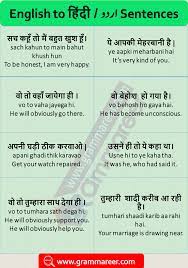 English to हिंदी / اردو Sentences
सच कहूँ तो मैं बहुत खुश हूँ।
sach kahun to main bahut
khush hun
To be honest, I am very happy.
ये आपकी मेहरबानी है।
ye aapki meharbani hai
It's very kind of you.
वो तो वहाँ जायेगा ही।
vo to vaha jayega hi.
He will obviously go there.
वो बेहोश हो गया है।
vo behosh ho gaya hai.
He has become unconscious.
अपनी घड़ी ठीक करवाओ।
apani ghadi thik karavao
Get your watch repaired.
उसने ही तो ये कहा था।
Usne hi to ye kaha tha.
It was he, who had said it.
वो तो तुम्हारा साथ देगा ही।
vo to tumhara sath dega hi.
He will obviously support you.
He will obviously help you.
तुम्हारी शादी करीब आ रही है।
tumhari shaadi karib aa rahi
hai.
Your marriage is drawing near.
www.grammareer.com